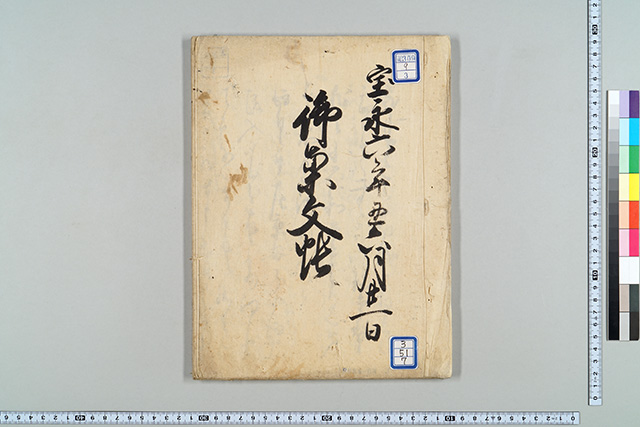 宝永六年丑六月廿一日
御案文帳
3
51
7